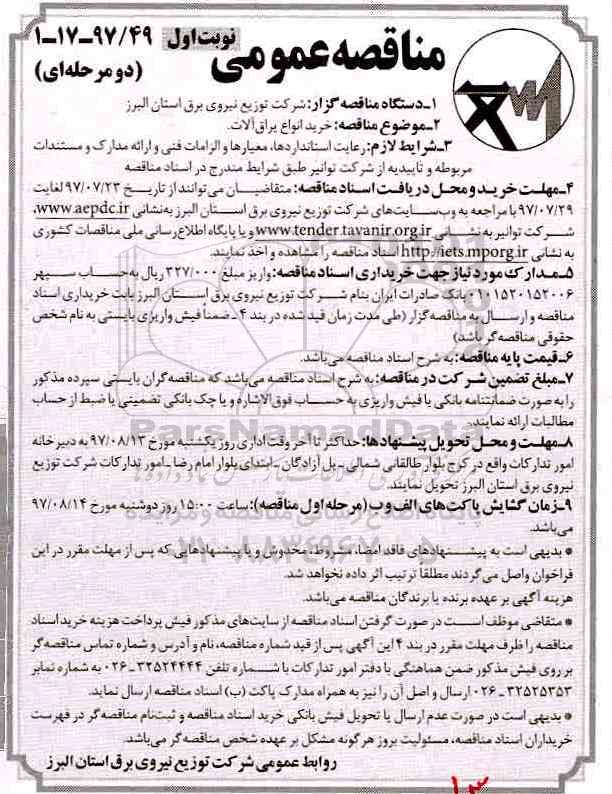 مناقصه عمومی
نوبت اول
۱-۱۷-۹۷/۴۹
(دو مرحله‌ای)
۱-دستگاه مناقصه گزار: شرکت توزیع نیروی برق استان البرز
۲-موضوع مناقصه: خرید انواع یراق‌آلات.
۳-شرایط لازم: رعایت استانداردها، معیارها و الزامات فنی و ارائه مدارک و مستندات
مربوطه و تاییدیه از شرکت توانیر طبق شرایط مندرج در اسناد مناقصه
۴-مهلت خرید و محل دریافت اسناد مناقصه: متقاضیان می‌توانند از تاریخ ۹۷/۰۷/۲۳ لغایت
۹۷/۰۷/۲۹ با مراجعه به وب‌سایت‌های شرکت توزیع نیروی برق استان البرز به‌نشانی www.aepdc.ir،
شرکت توانیر به نشانی www.tender.tavanir.org.ir و یا پایگاه اطلاع‌رسانی ملی مناقصات کشوری
به نشانی http://iets.mporg.ir اسناد مناقصه را مشاهده و اخذ نمایند.
۵-مدارک مورد نیاز جهت خریداری اسناد مناقصه: واریز مبلغ ۳۲۷/۰۰۰ ریال به‌حساب سپهر
بانک صادرات ایران بنام شرکت توزیع نیروی برق استان البرز بابت خریداری اسناد
مناقصه و ارسال به مناقصه گزار (طی مدت زمان قید شده در بند ۴ - ضمناً فیش واریزی بایستی به نام شخص
حقوقی مناقصه‌گر باشد)
۶-قیمت پایه مناقصه: به شرح اسناد مناقصه می‌باشد.
۷-مبلغ تضمین شرکت در مناقصه: به شرح اسناد مناقصه می‌باشد که مناقصه‌گران بایستی سپرده مذکور
را به صورت ضمانتنامه بانکی یا فیش واریزی به حساب فوق‌الاشاره و یا چک بانکی تضمینی یا ضبط از حساب
مطالبات ارائه نمایند.
۸-مهلت و محل تحویل پیشنهادها: حداکثر تا آخر وقت اداری روز یکشنبه مورخ ۹۷/۰۸/۱۳ به دبیرخانه
امور تدارکات واقع در کرج بلوار طالقانی شمالی - پل آزادگان - ابتدای بلوار امام رضا - امور تدارکات شرکت توزیع
نیروی برق استان البرز تحویل نمایند.
۹-زمان گشایش پاکت‌های الف و ب (مرحله اول مناقصه): ساعت ۱۵:۰۰ روز دوشنبه مورخ ۹۷/۰۸/۱۴
می‌باشد.
* بدیهی است به پیشنهادهای فاقد امضا، مشروط، مخدوش و یا پیشنهادهایی که پس از مهلت مقرر در این
فراخوان واصل می‌گردند مطلقا ترتیب اثر داده نخواهد شد.
هزینه آگهی بر عهده برنده یا برندگان مناقصه می‌باشد.
* متقاضی موظف است در صورت گرفتن اسناد مناقصه از سایت‌های مذکور فیش پرداخت هزینه خرید اسناد
مناقصه را ظرف مهلت مقرر در بند ۴ این آگهی پس از قید شماره مناقصه، نام و آدرس و شماره تماس مناقصه‌گر
بر روی فیش مذکور ضمن هماهنگی با دفتر امور تدارکات با شماره تلفن ۳۲۵۲۴۴۴۴-۰۲۶ به شماره نمابر
۳۲۵۲۵۳۵۳-۰۲۶ ارسال و اصل آن را نیز به همراه مدارک پاکت (ب) اسناد مناقصه ارسال نماید.
* بدیهی است در صورت عدم ارسال یا تحویل فیش بانکی خرید اسناد مناقصه و ثبت‌نام مناقصه‌گر در فهرست
خریداران اسناد مناقصه، مسئولیت بروز هرگونه مشکل بر عهده شخص مناقصه‌گر می‌باشد.
روابط عمومی شرکت توزیع نیروی برق استان البرز
ParsNamadData